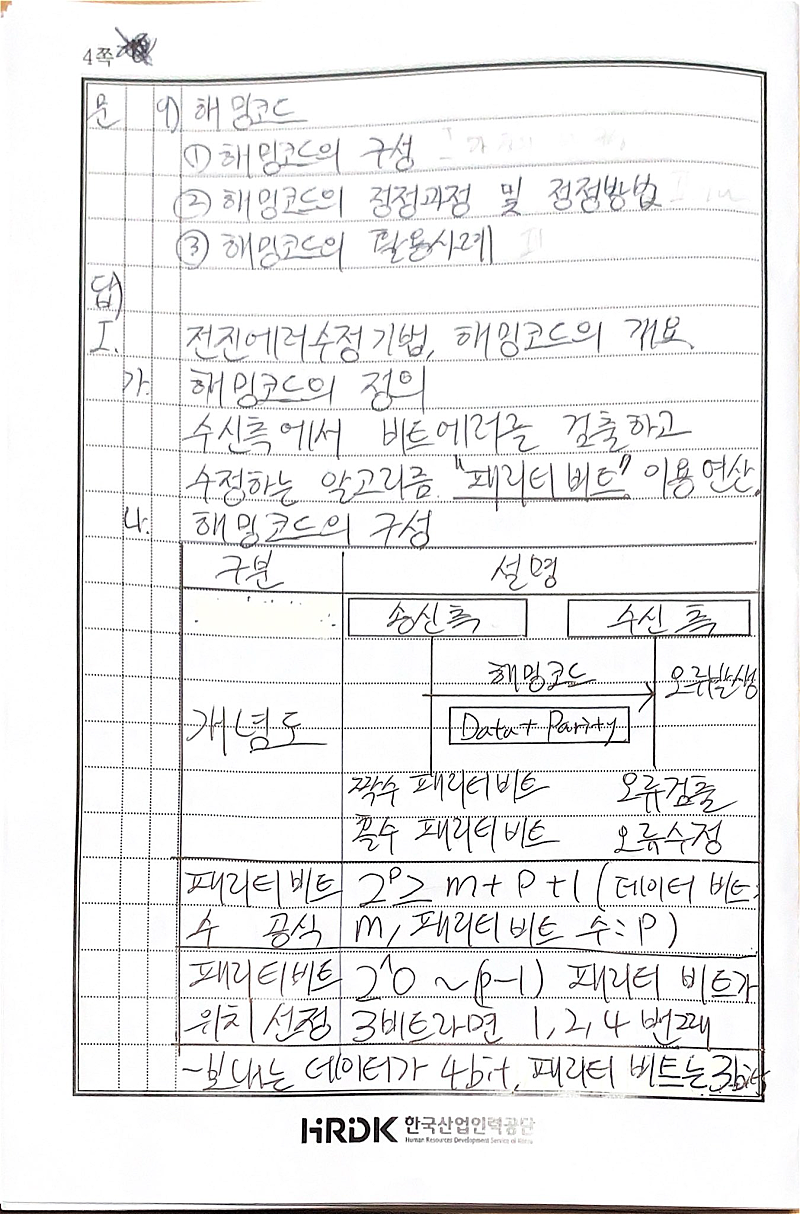 4쪽
문 9) 해밍코드
① 해밍코드의 구성
② 해밍코드의 정정과정 및 정정방법
③ 해밍코드의 활용사례
답)
I. 전진에러수정기법, 해밍코드의 개요
가. 해밍코드의 정의
수신측에서 비트에러를 검출하고
수정하는 알고리즘. "패리티비트" 이용 연산.
나. 해밍코드의 구성
구분 설명
송신측 수신측
해밍코드 오류발생
개념도 Data + Parity
짝수 패리티비트 오류검출
홀수 패리티비트 오류수정
패리티비트 2^p ≥ m + p + 1 (데이터 비트:
수 공식 m, 패리티비트 수: p)
패리티비트 2^0 ~ (p-1) 패리티 비트가
위치 선정 3비트라면 1, 2, 4 번째
- 보내는 데이터가 4bit, 패리티 비트는 3bit
HRDK 한국산업인력공단
Human Resources Development Service of Korea